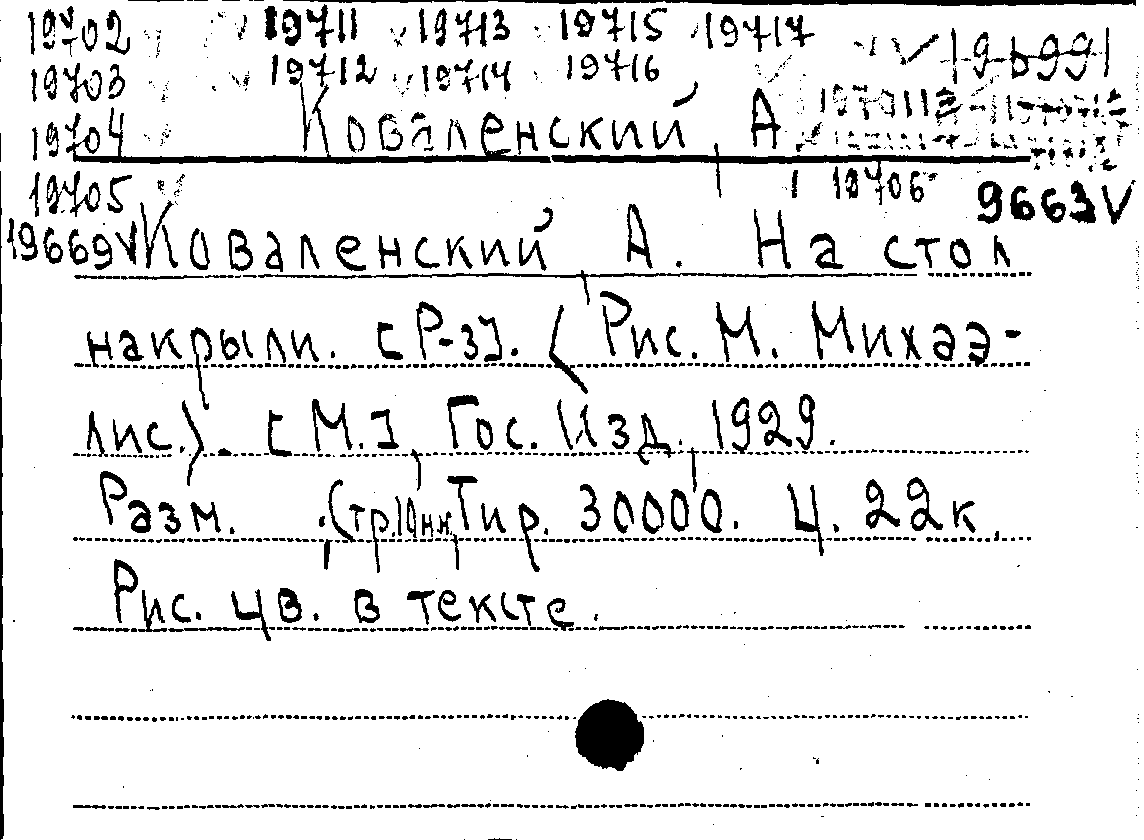 19702 19711 19713 19715 19717
19703 19712 19714 19716 19699
19704 Коваленский, А.
19705 19706 9663
19669 Коваленский, А. На стол
накрыли. [Р-з]. (Рис. М. Михаэ-
лис.). [М.], Гос. Изд., 1929.
Разм. , (тр.) 10 н.н., Тир. 30000. Ц. 22к.
Рис. цв. в тексте.